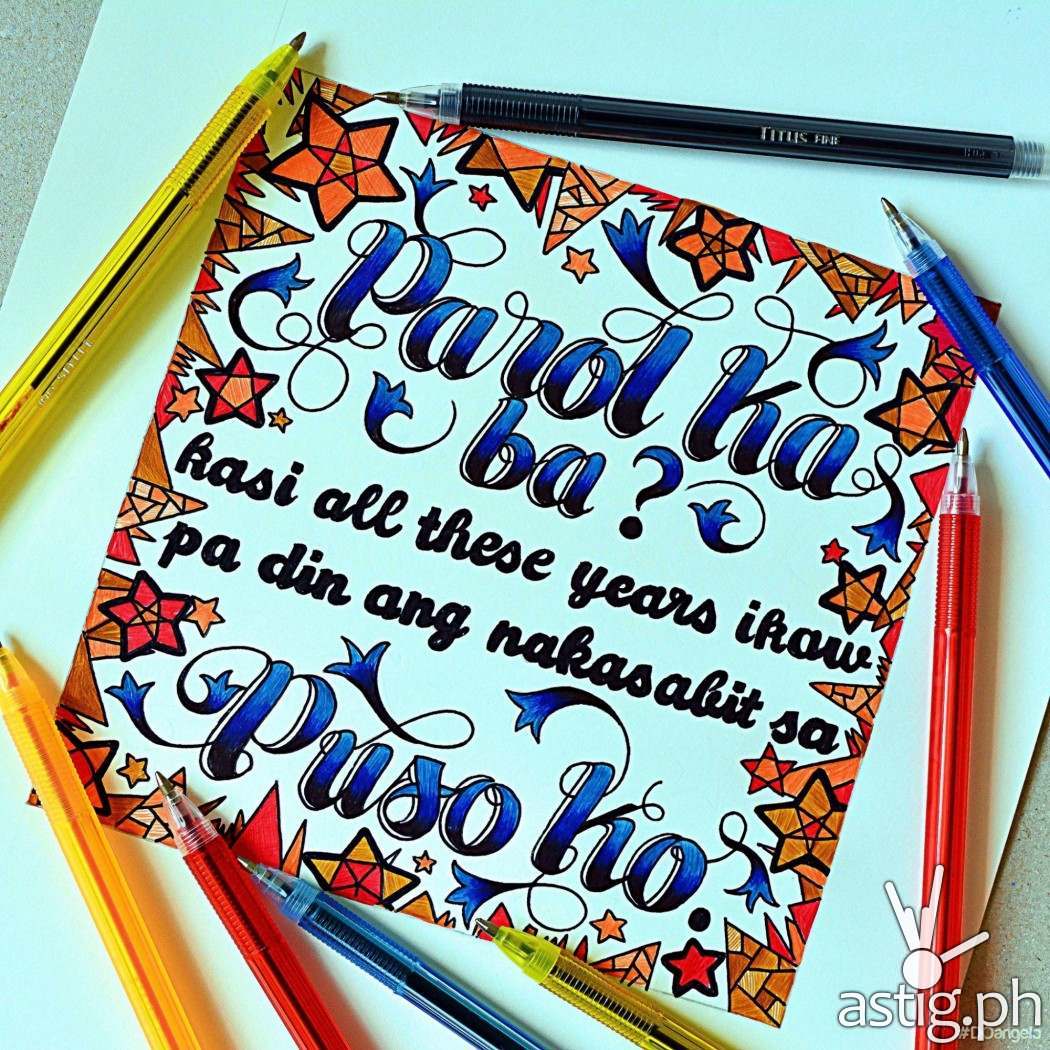 Parol ka
ba?
kasi all these years ikaw
pa din ang nakasabit sa
Puso ko.
TITUS FINE
astig.ph